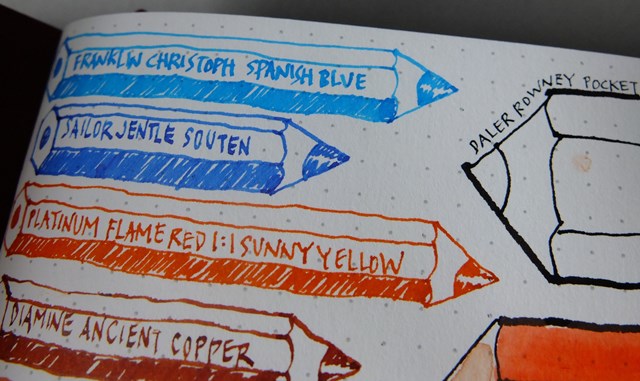 FRANKLIN CHRISTOPH SPANISH BLUE
SAILOR JENTLE SOUTEN
PLATINUM FLAME RED 1:1 SUNNY YELLOW
DIAMINE ANCIENT COPPER
DALER ROWNEY POCKET